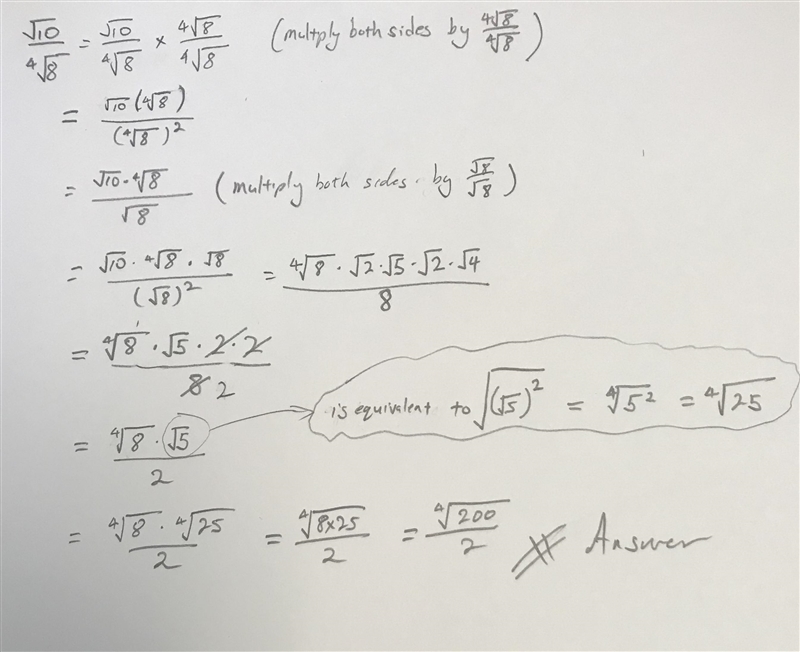 √10/⁴√8 = √10/⁴√8 × ⁴√8/⁴√8 (multply both sides by ⁴√8/⁴√8)
= √10(⁴√8)/(⁴√8)²
= √10·⁴√8/√8 (multiply both sides. by √8/√8)
= √10·⁴√8·√8/(√8)² = ⁴√8·√2·√5·√2·√4/8
= ⁴√8·√5·2·2/8 2
= ⁴√8·√5/2 is equivalent to √(√5)² = ⁴√5² = ⁴√25
= ⁴√8·⁴√25/2 = ⁴√8×25/2 = ⁴√200/2 Answer